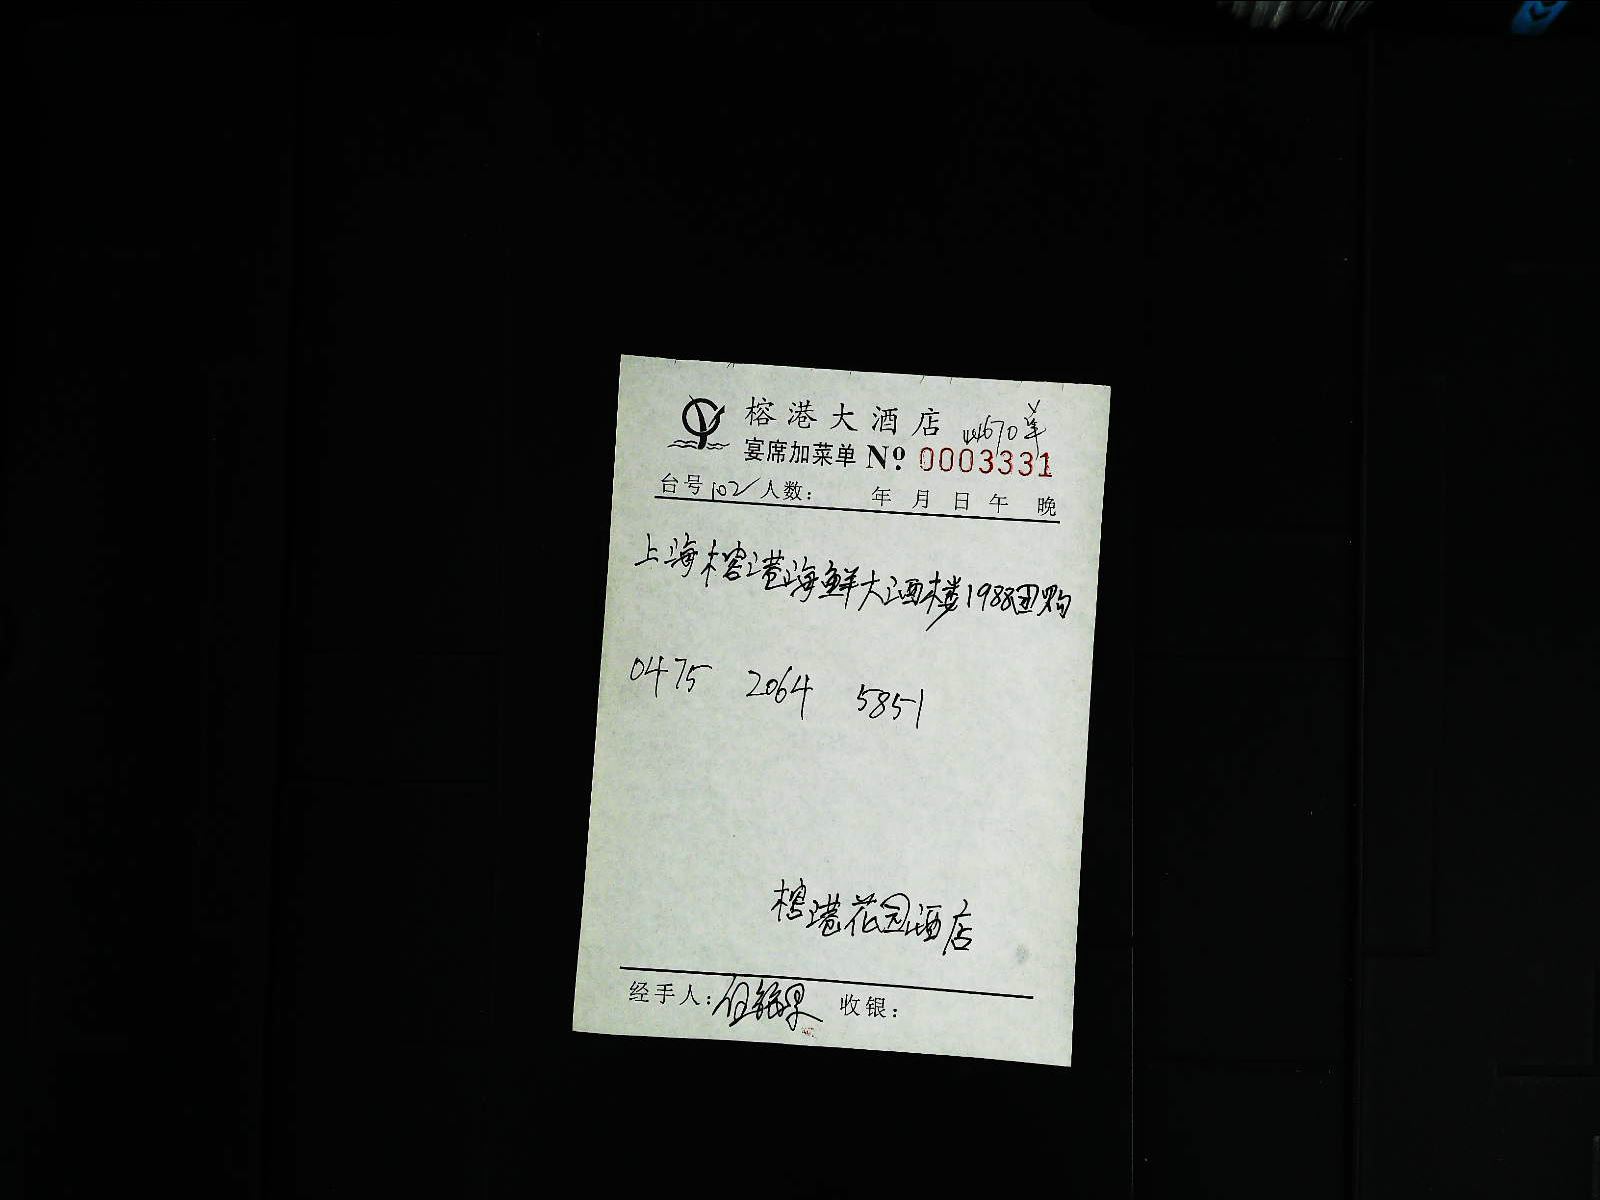 榕港大酒店
宴席加菜单 Nº 0003331
台号102 人数: 年 月 日 午 晚
上海榕港海鲜大酒楼1988团购
0475 2064 5851
榕港花园酒店
经手人: 收银: